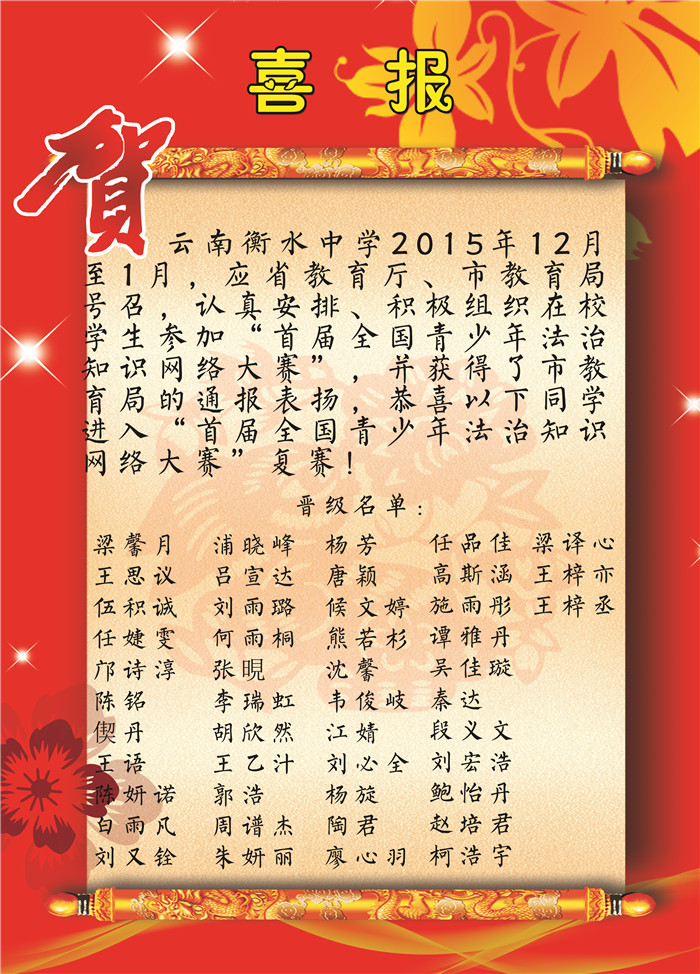 喜报
贺
云南衡水中学2015年12月
至1月，应省教育厅、市教育局
号召，认真安排、积极组织在校
学生参加“首届全国青少年法治
知识网络大赛”，并获得了市教
育局的通报表扬，恭喜以下同学
进入“首届全国青少年法治知识
网络大赛”复赛！
晋级名单：
梁馨月 浦晓峰 杨芳 任品佳 梁译心
王思议 吕宣达 唐颖 高斯涵 王梓亦
伍积诚 刘雨璐 候文婷 施雨彤 王梓丞
任婕雯 何雨桐 熊若杉 谭雅丹
邝诗淳 张晛 沈馨 吴佳璇
陈铭 李瑞虹 韦俊岐 秦达
偰丹 胡欣然 江婧 段义文
王语 王乙汁 刘必全 刘宏浩
陈妍诺 郭浩 杨旋 鲍怡丹
白雨凡 周谱杰 陶君 赵培君
刘又铨 朱妍丽 廖心羽 柯浩宇